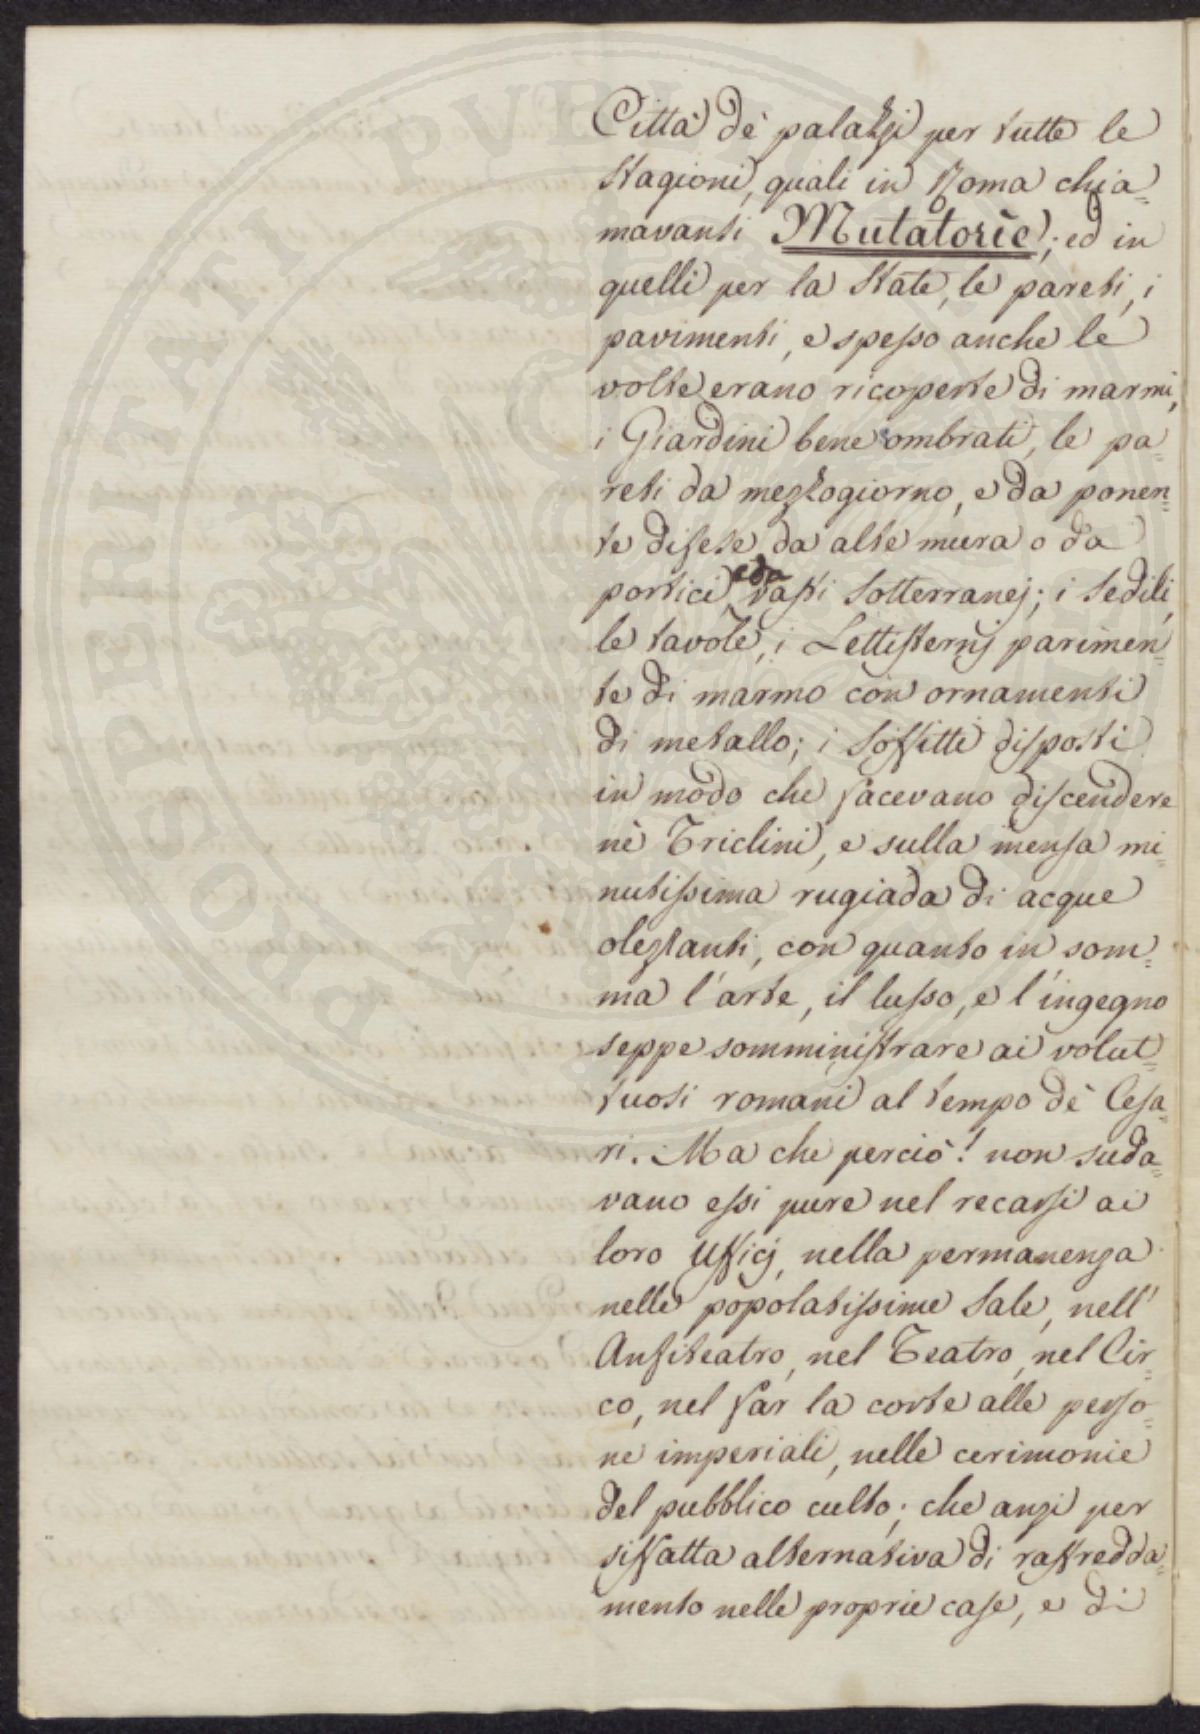 Città de' palazzi per tutte le
Stagioni, quali in Roma chia=
mavansi Mutatorie; ed in
quelli per la State, le pareti, i
pavimenti, e spesso anche le
volte erano ricoperte di marmi,
i Giardini bene ombrati, le pa=
reti da mezzogiorno, e da ponen=
te difese da alte mura o da
portici, eda vasti Sotterranej; i Sedili,
le tavole, i Lettisternj parimen=
te di marmo con ornamenti
di metallo; i Soffitti disposti
in modo che facevano discendere
nè Triclini, e sulla mensa mi=
nutissima rugiada di acque
olezzanti, con quanto in som=
ma l'arte, il lusso, e l'ingegno
seppe somministrare ai volut=
tuosi romani al tempo dè Cesa=
ri. Ma che perciò! non suda=
vano essi pure nel recarsi ai
loro Ufficj, nella permanenza
nelle popolatissime Sale, nell'
Anfiteatro, nel Teatro, nel Cir=
co, nel far la corte alle perso=
ne imperiali, nelle cerimonie
del pubblico culto; che anzi per
siffatta alternativa di raffredda=
mento nelle proprie case, e di
PROSPERITATI PUBLI